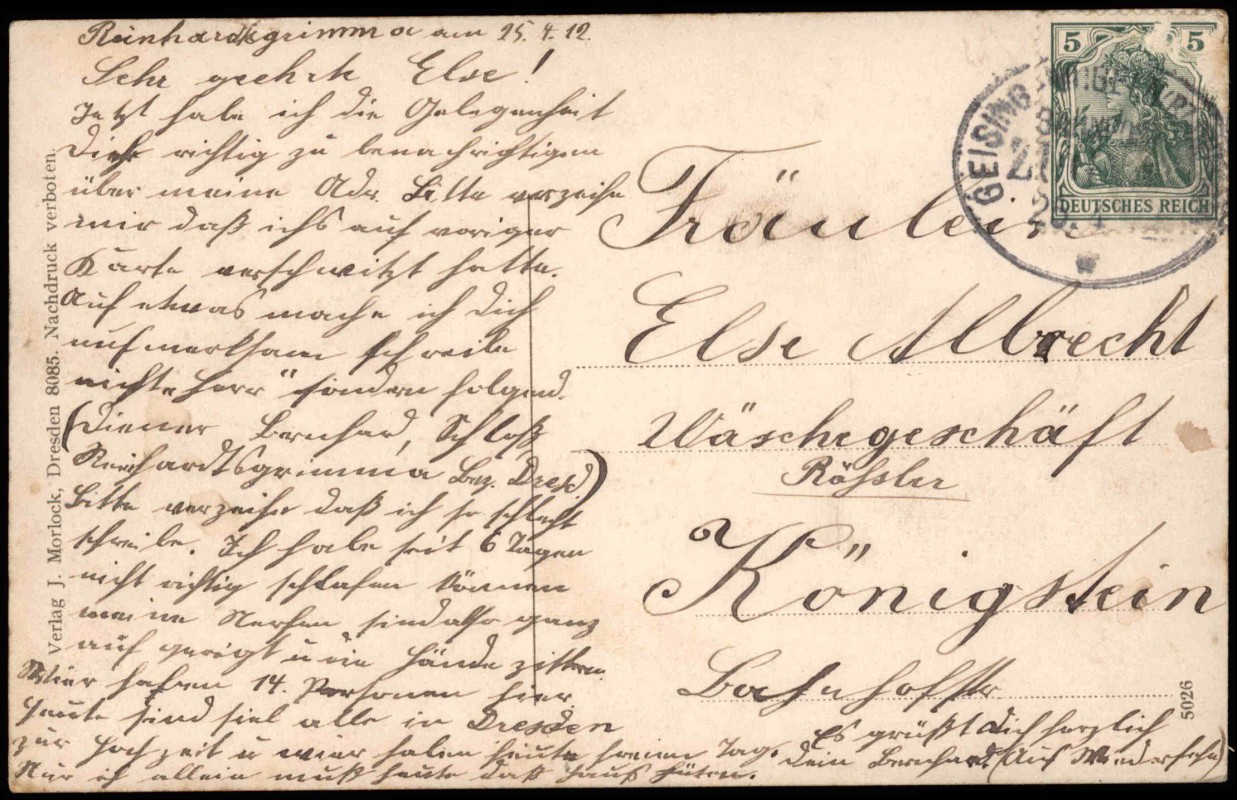 Reinhardtsgrimma am 25.4.12.
Sehr geehrte Else!
Jetzt habe ich die Gelegenheit
Dich richtig zu benachrichtigen
über meine Adr. Bitte verzeihe
mir daß ichs auf voriger
Karte verschwitzt hatte.
Auf etwas mache ich dich
aufmerksam schreibe
nicht „Herr" sondern folgend.
(Diener Bernhard, Schloß
Reinhardtsgrimma Bez. Dresd)
Bitte verzeihe daß ich so schlecht
schreibe. Ich habe seit 6 Tagen
nicht richtig schlafen können
meine Nerfen sind also ganz
auf geregt u die Hände zittern.
Wier haben 14. Personen hier
heute sind siel alle in Dresden
zur Hochzeit u wier haben heute freien Tag.
Nur ich allein muß heute daß Haus hüten.
Es grüßt Dich herzlich
Dein Bernhard (Auf Wiedersehn)
Fräulein
Else Albrecht
Wäschegeschäft
Rößler
Königstein
Bahnhofstr
5 5
DEUTSCHES REICH
GEISING
Verlag J. Morlock, Dresden 8085. Nachdruck verboten.
5026